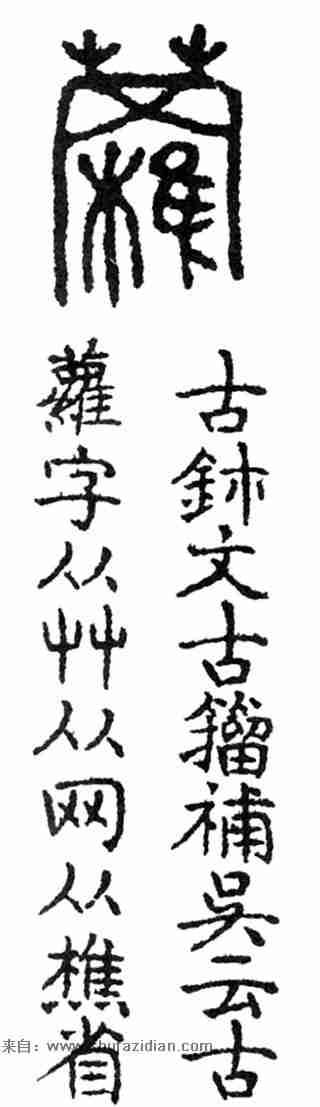 古鉥文古籀補吳云古
蘿字从艸从网从樵省
来自：www.shufazidian.com